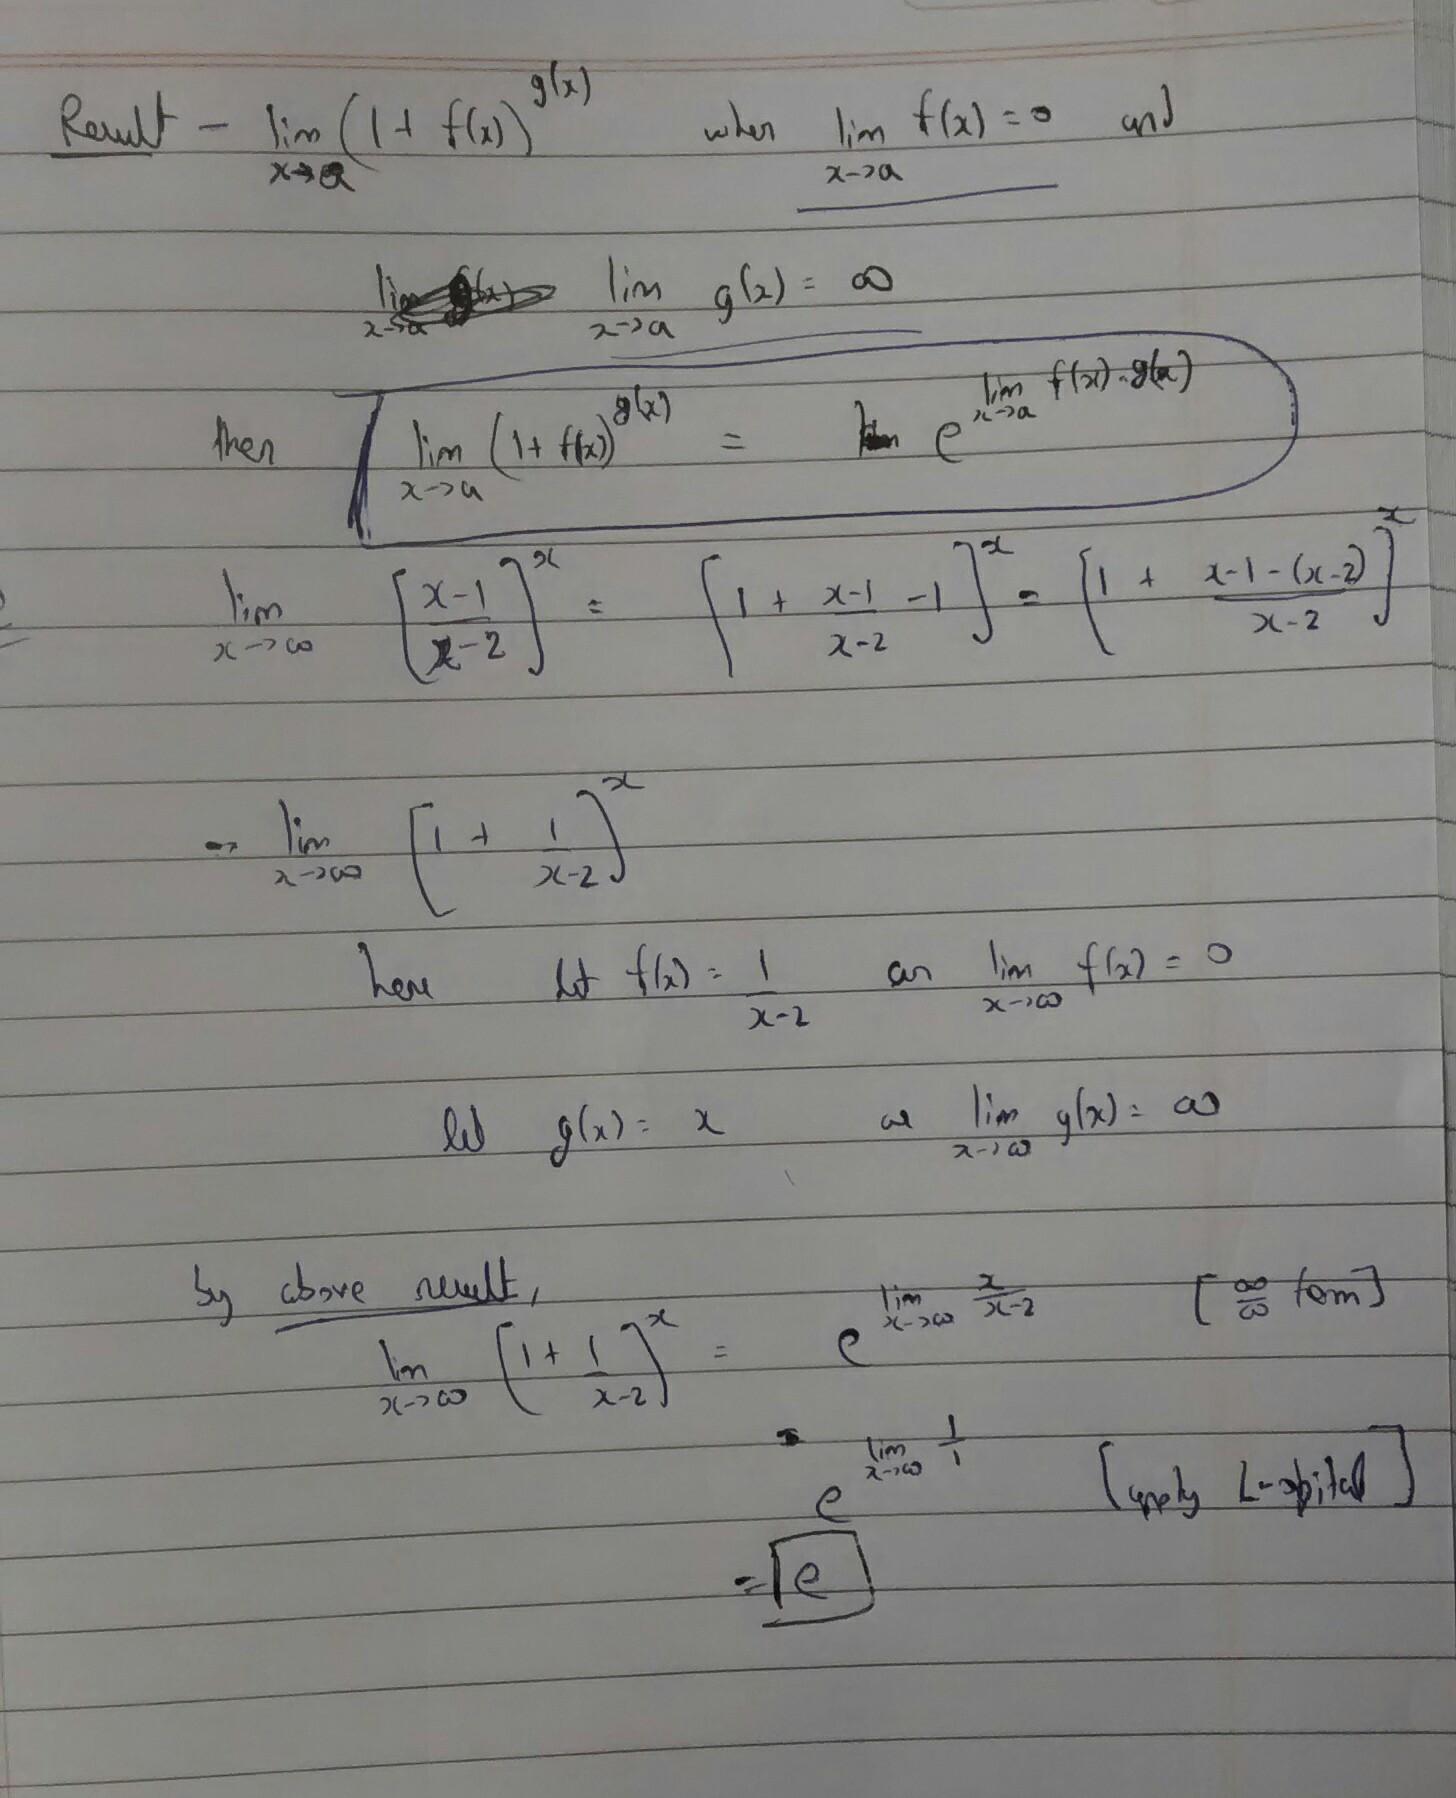 Result - lim x→a (1 + f(x))^g(x) when lim x→a f(x) = 0 and
lim x→a g(x) = ∞
then lim x→a (1 + f(x))^g(x) = e^lim x→a f(x)·g(x)
lim x→∞ [(x-1)/(x-2)]^x = [1 + (x-1)/(x-2) - 1]^x = [1 + (x-1-(x-2))/(x-2)]^x
→ lim x→∞ [1 + 1/(x-2)]^x
here let f(x) = 1/(x-2) as lim x→∞ f(x) = 0
let g(x) = x as lim x→∞ g(x) = ∞
by above result,
lim x→∞ [1 + 1/(x-2)]^x = e^lim x→∞ x/(x-2) [∞/∞ form]
= e^lim x→∞ 1/1 [apply L-opital]
= e